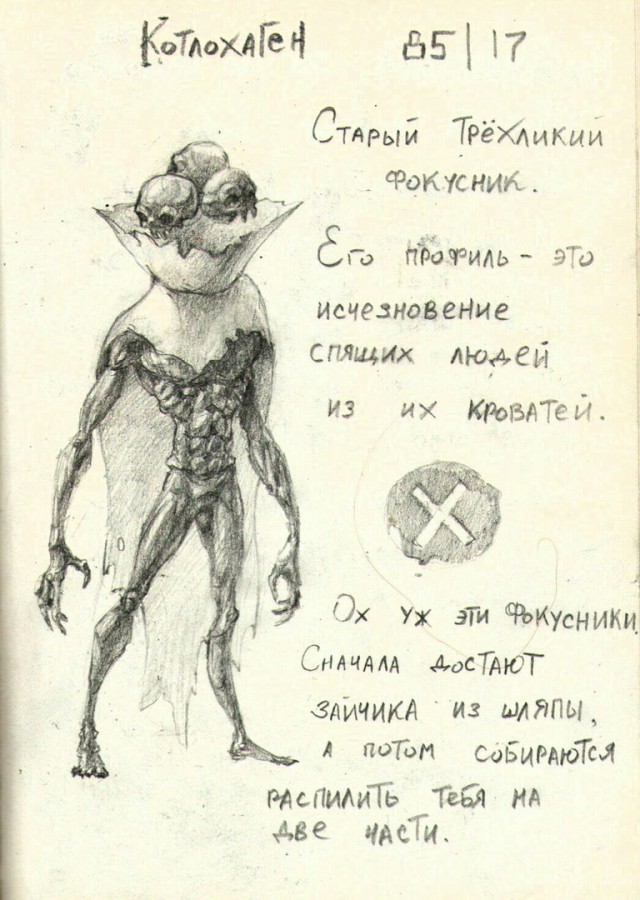 Котлохаген 85|17
Старый Трёхликий
фокусник.
Его профиль - это
исчезновение
спящих людей
из их кроватей.
Ох уж эти фокусники
Сначала достают
зайчика из шляпы,
а потом собираются
распилить тебя на
две части.